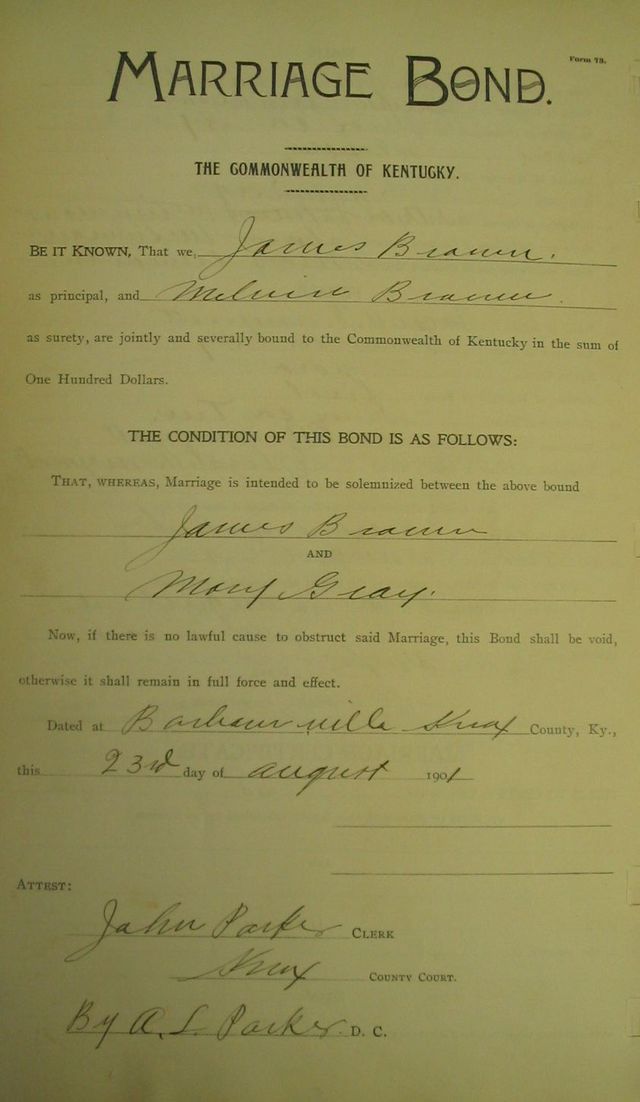 Form 73.
MARRIAGE BOND.
THE COMMONWEALTH OF KENTUCKY.
BE IT KNOWN, That we, James Brown.
as principal, and Melvin Brown.
as surety, are jointly and severally bound to the Commonwealth of Kentucky in the sum of
One Hundred Dollars.
THE CONDITION OF THIS BOND IS AS FOLLOWS:
THAT, WHEREAS, Marriage is intended to be solemnized between the above bound
James Brown
AND
Mary Gray.
Now, if there is no lawful cause to obstruct said Marriage, this Bond shall be void,
otherwise it shall remain in full force and effect.
Dated at Barbourville Knox County, Ky.,
this 23rd day of august 1901
ATTEST:
John Parker CLERK
Knox COUNTY COURT.
By A. L. Parker D. C.